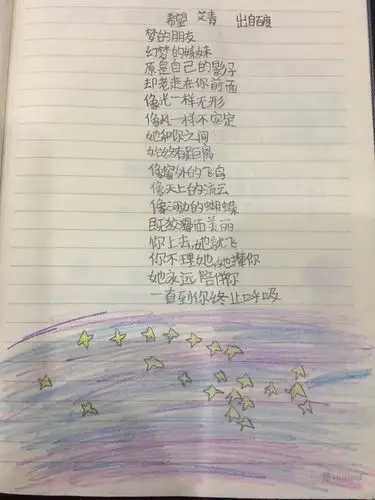 希望 艾青 出自百度
梦的朋友
幻梦的姊妹
原是自己的影子
却老走在你前面
像光一样无形
像风一样不安定
她和你之间
始终有距离
像窗外的飞鸟
像天上的流云
像河边的蝴蝶
既狡猾而美丽
你上去,她就飞
你不理她,她撵你
她永远陪伴你
一直到你终止呼吸